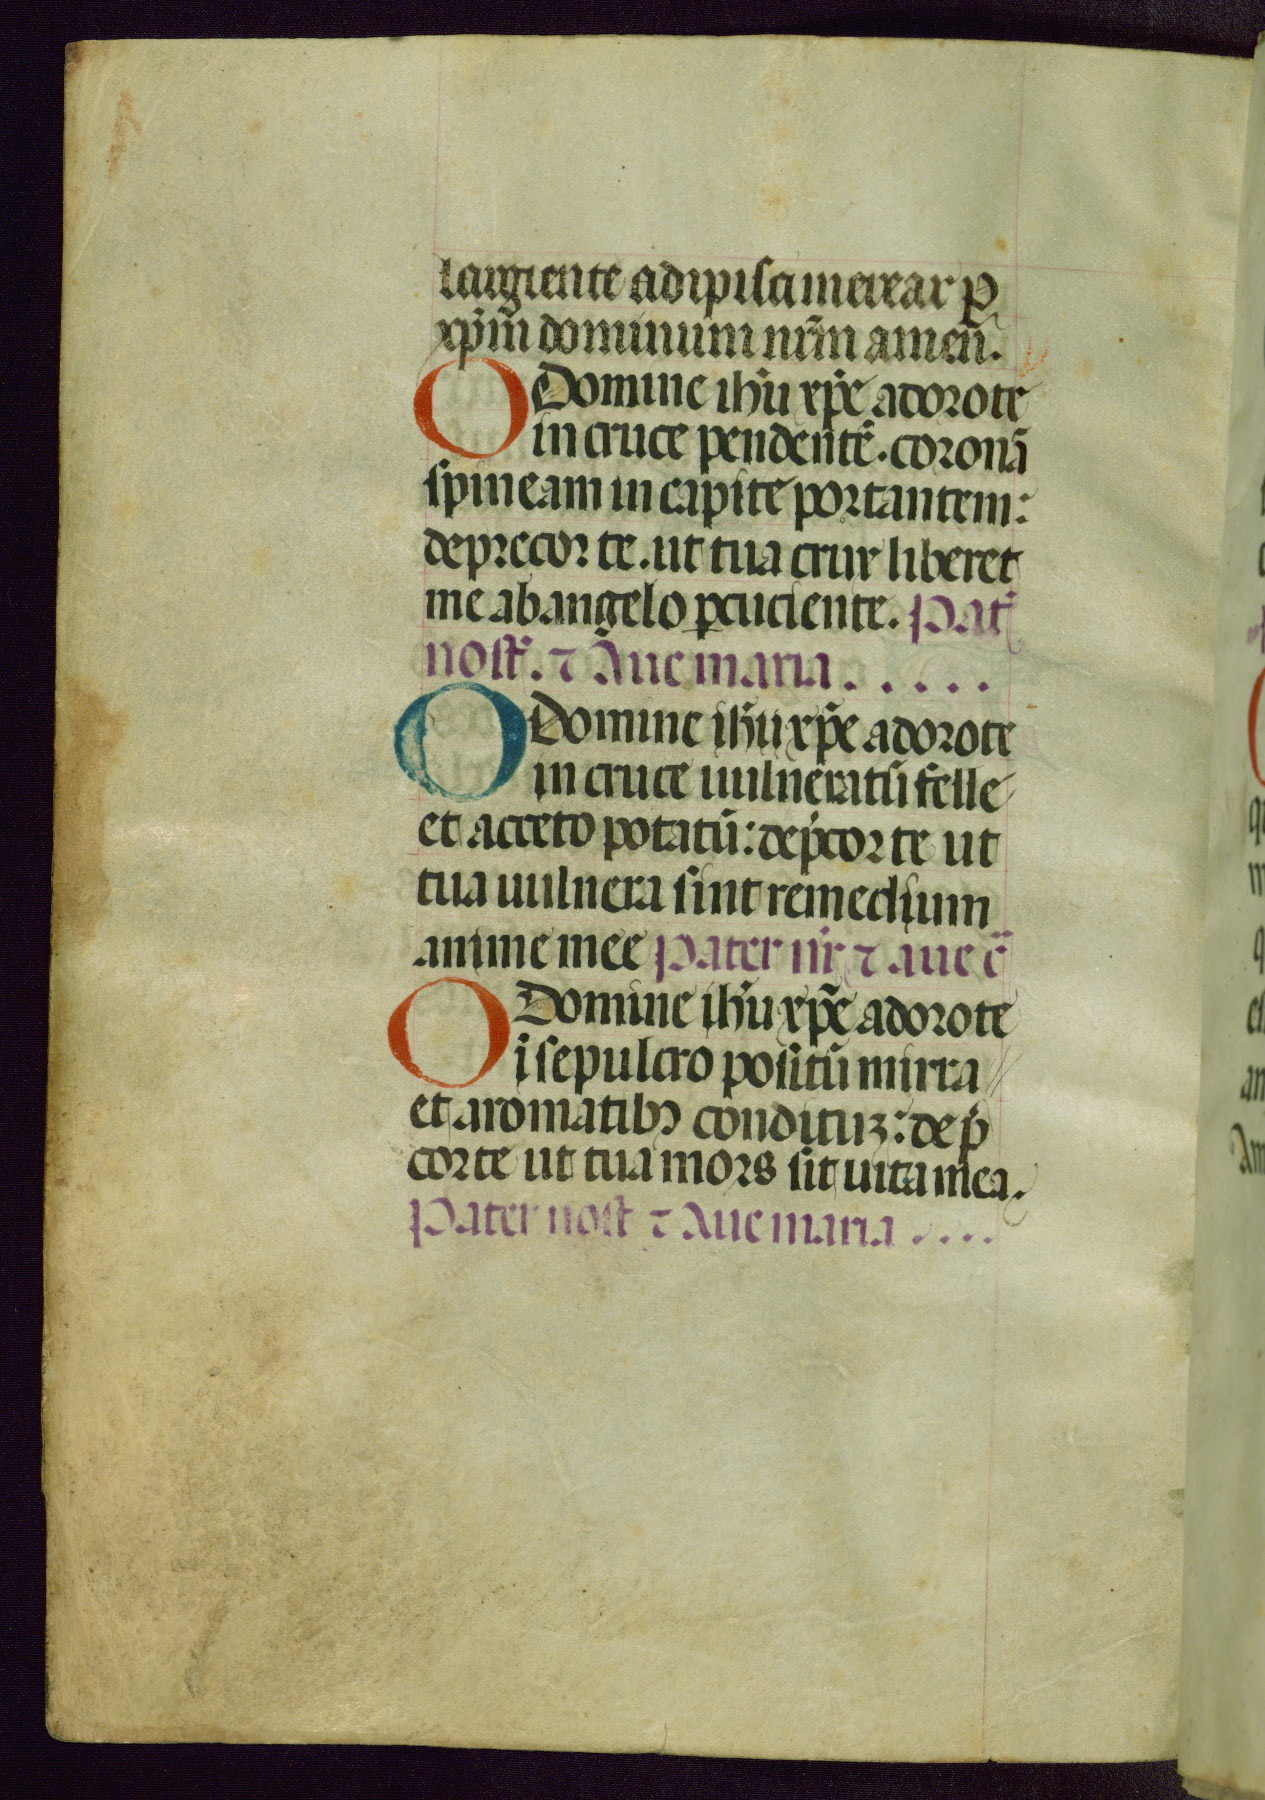 largiente adipisci merear ꝑ
xp̄m dominum nr̄m amen̄.
O Domine ihū xp̄e adoro te
in cruce pendentē. coronā
spineam in capite portantem:
deprecor te. ut tua crux liberet
me ab angelo ꝑcuciente. Pat̄
nost̄. ⁊ Aue maria . . . . .
O Domine ihū xp̄e adoro te
in cruce uulneratū felle
et aceto potatū: dep̄cor te ut
tua uulnera sint remedium
anime mee Pater nr̄ ⁊ aue c̄
O Domine ihū xp̄e adoro te
ī sepulcro positū mirra
et aromatibꝰ conditūz: dep̄
cor te ut tua mors sit uita mea.
Pater nost ⁊ Aue maria . . . .